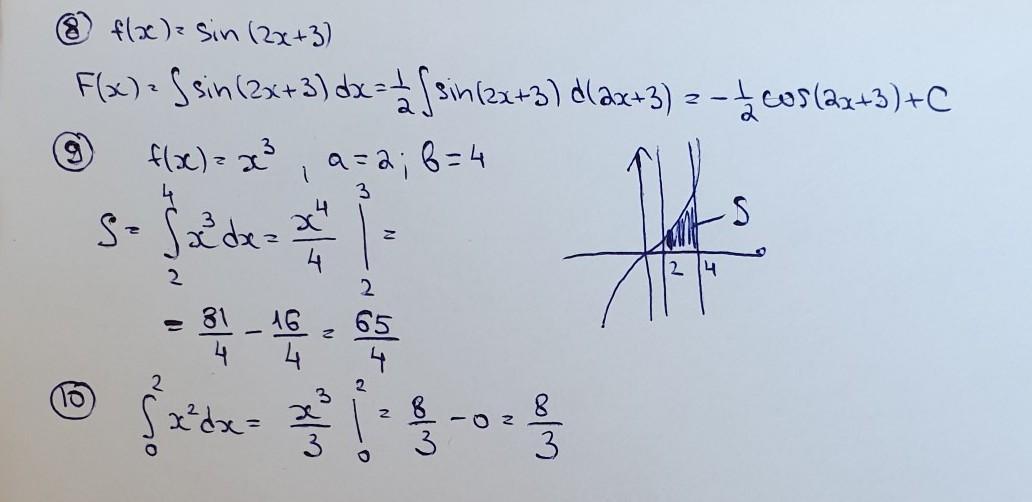 ⑧ f(x) = sin (2x+3)
F(x) = ∫ sin(2x+3) dx = 1/2 ∫ sin(2x+3) d(2x+3) = - 1/2 cos(2x+3) + C
⑨ f(x) = x³, a = 2; b = 4
S = ∫₂⁴ x³ dx = x⁴/4 |₂³ =
= 81/4 - 16/4 = 65/4
S
2 4
⑩ ∫₀² x² dx = x³/3 |₀² = 8/3 - 0 = 8/3